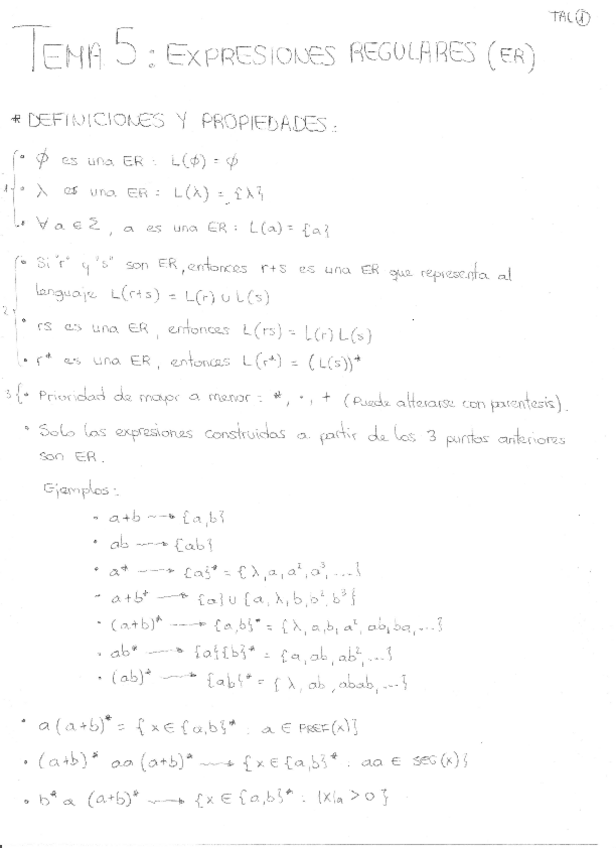 TAL ①
TEMA 5: EXPRESIONES REGULARES (ER)
* DEFINICIONES Y PROPIEDADES:
1 • ϕ es una ER: L(ϕ) = ϕ
• λ es una ER: L(λ) = {λ}
• ∀ a ∈ Σ, a es una ER: L(a) = {a}
• Si "r" y "s" son ER, entonces r+s es una ER que representa al
lenguaje L(r+s) = L(r) ∪ L(s)
2 • rs es una ER, entonces L(rs) = L(r) L(s)
• r* es una ER, entonces L(r*) = (L(s))*
3 { • Prioridad de mayor a menor: *, ·, + (Puede alterarse con parentesis).
• Solo las expresiones construidas a partir de los 3 puntos anteriores
son ER.
Ejemplos:
• a+b → {a,b}
• ab → {ab}
• a* → {a}* = {λ, a, a², a³, ...}
- a+b* → {a} ∪ {a, λ, b, b², b³}
• (a+b)* → {a,b}* = {λ, a, b, a², ab, ba, ...}
• ab* → {a}{b}* = {a, ab, ab², ...}
• (ab)* → {ab}* = {λ, ab, abab, ...}
• a (a+b)* = {x ∈ {a,b}* : a ∈ PREF(x)}
• (a+b)* aa (a+b)* → {x ∈ {a,b}* : aa ∈ SEG(x)}
• b* a (a+b)* → {x ∈ {a,b}* : |x|a > 0}